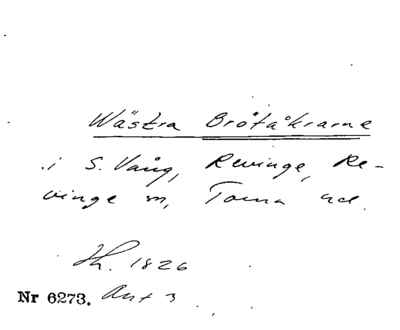 Wästra Brötåkrarne
i S. Vång, Revinge, Re-
vinge sn, Torna hd.
Sk. 1826
Nr 6273. Akt 3